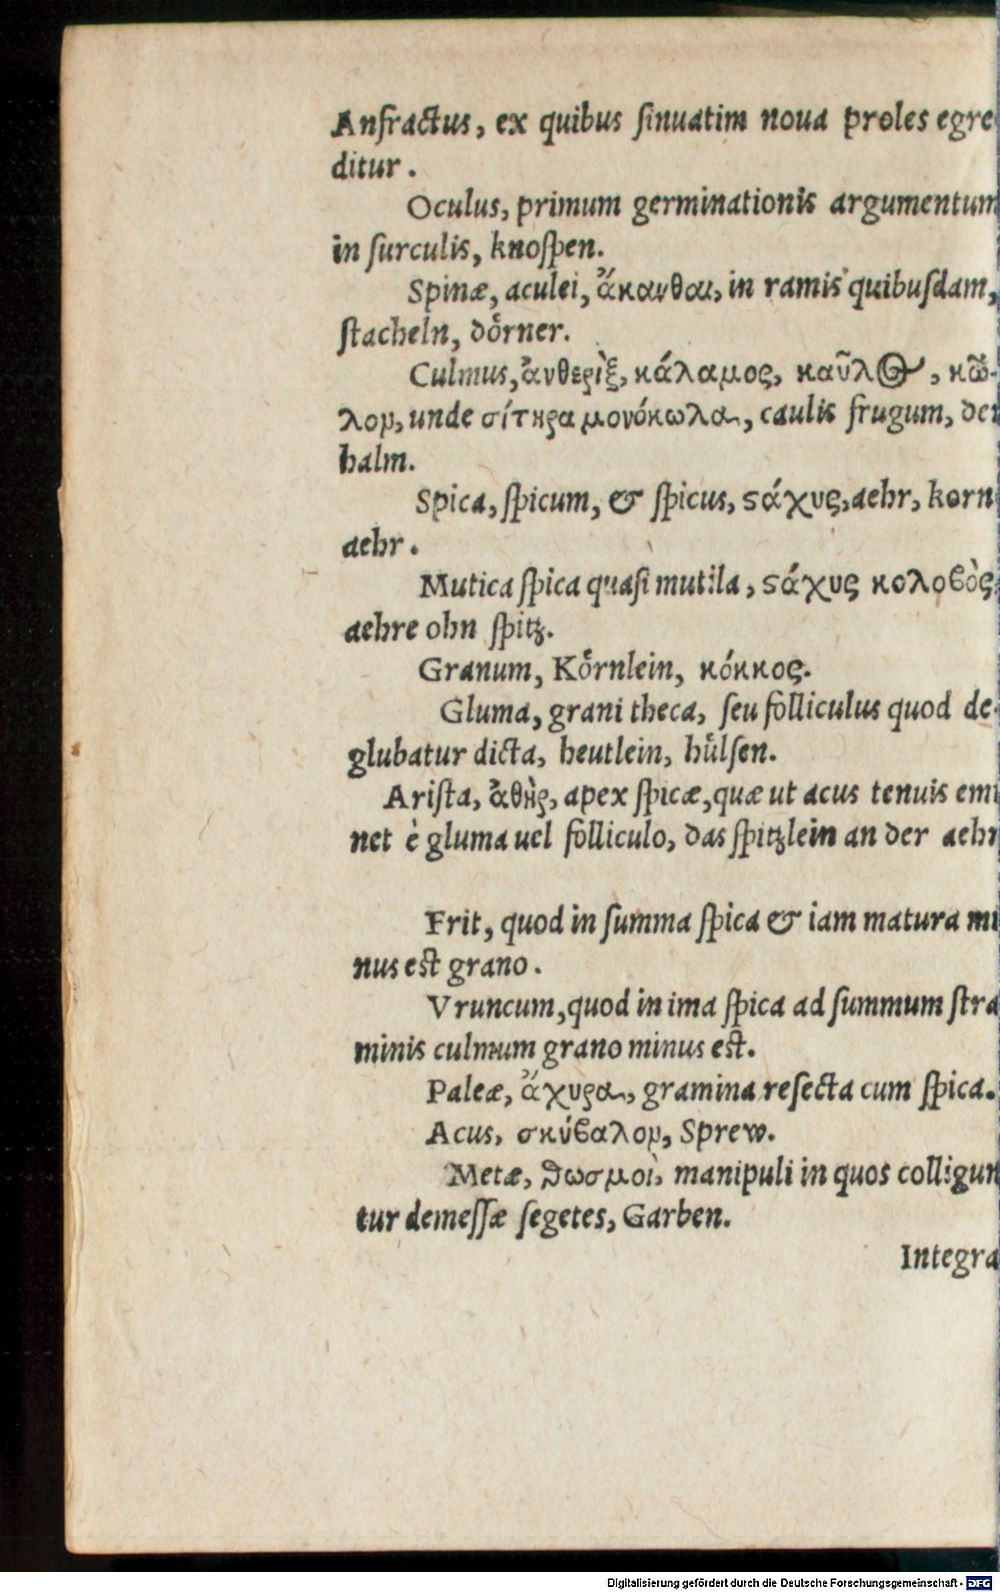 Anfractus, ex quibus ſinuatim noua proles egre
ditur.
Oculus, primum germinationis argumentum
in ſurculis, knoſpen.
Spinæ, aculei, ἄκανθαι, in ramis quibuſdam,
ſtacheln, doͤrner.
Culmus, ἀνθερὶξ, κάλαμος, καῦλος, κῶ-
λον, unde σίτηρα μονόκωλα, caulis frugum, der
halm.
Spica, ſpicum, & ſpicus, ϛάχυς, aehr, korn
aehr.
Mutica ſpica quaſi mutila, ϛάχυς κολοβὸς,
aehre ohn ſpitz.
Granum, Koͤrnlein, κόκκος.
Gluma, grani theca, ſeu folliculus quod de-
glubatur dicta, heutlein, huͤlſen.
Ariſta, ἀθὴρ, apex ſpicæ, quæ ut acus tenuis emi
net è gluma uel folliculo, das ſpitzlein an der aehr
Frit, quod in ſumma ſpica & iam matura mi
nus eſt grano.
Vruncum, quod in ima ſpica ad ſummum ſtra
minis culmum grano minus eſt.
Paleæ, ἄχυρα, gramina reſecta cum ſpica.
Acus, σκύβαλον, Sprew.
Metæ, θωσμοὶ, manipuli in quos colligun
tur demeſſæ ſegetes, Garben.
Integra
Digitalisierung gefördert durch die Deutsche Forschungsgemeinschaft - DFG